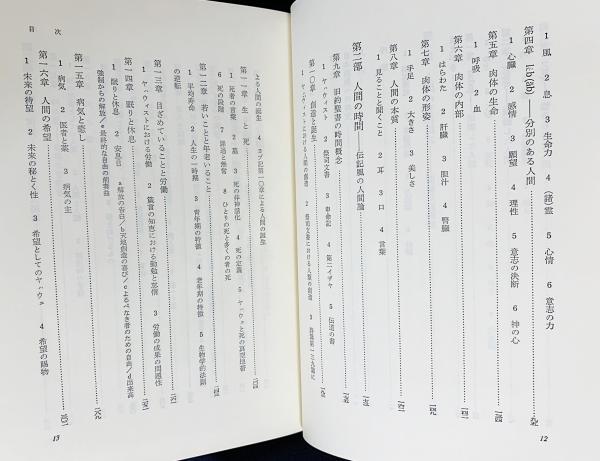 1 風 2 息 3 生命力 4 (諸)霊 5 心情 6 意志の力
第四章 lēb(āb)——分別のある人間
1 心臓 2 感情 3 願望 4 理性 5 意志の決断 6 神の心
第五章 肉体の生命
1 呼吸 2 血
第六章 肉体の内部
1 はらわた 2 肝臓 3 胆汁 4 腎臓
第七章 肉体の形姿
1 手足 2 大きさ 3 美しさ
第八章 人間の本質
1 見ることと聞くこと 2 耳 3 口 4 言葉
第二部 人間の時間——伝記風の人間論
第九章 旧約聖書の時間概念
1 ヤハウィスト 2 祭司文書 3 申命記 4 第二イザヤ 5 伝道の書
第一〇章 創造と誕生
1 ヤハウィストにおける人類の創造 2 祭司文書における人類の創造 3 詩篇第一三九篇に
12
よる人間の誕生 4 ヨブ記第一〇章による人間の誕生
第一一章 生と死
1 死者の言葉 2 墓 3 死の非神話化 4 死の定義 5 ヤハウェと死の真空地帯
6 死の段階 7 諦念と無常 8 ひとりの死と多くの者の死
第一二章 若いことと年老いること
1 平均寿命 2 人生の一時期 3 青年期の特徴 4 老年期の特徴 5 生物学的法則
の逆転
第一三章 目ざめていることと労働
1 ヤハウィストにおける労働 2 箴言の知恵における勤勉と怠惰 3 労働の成果の問題性
第一四章 眠りと休息
1 眠りと休息 2 安息日 a解放の告白/b天地創造の喜び/cよるべなき者のための自由/d出来高
強制からの解放/e最終的な自由の前奏曲
第一五章 病気と癒し
1 病気 2 医者と薬 3 病気の主
第一六章 人間の希望
1 未来の待望 2 未来の秘とく性 3 希望としてのヤハウェ 4 希望の賜物
目 次
13